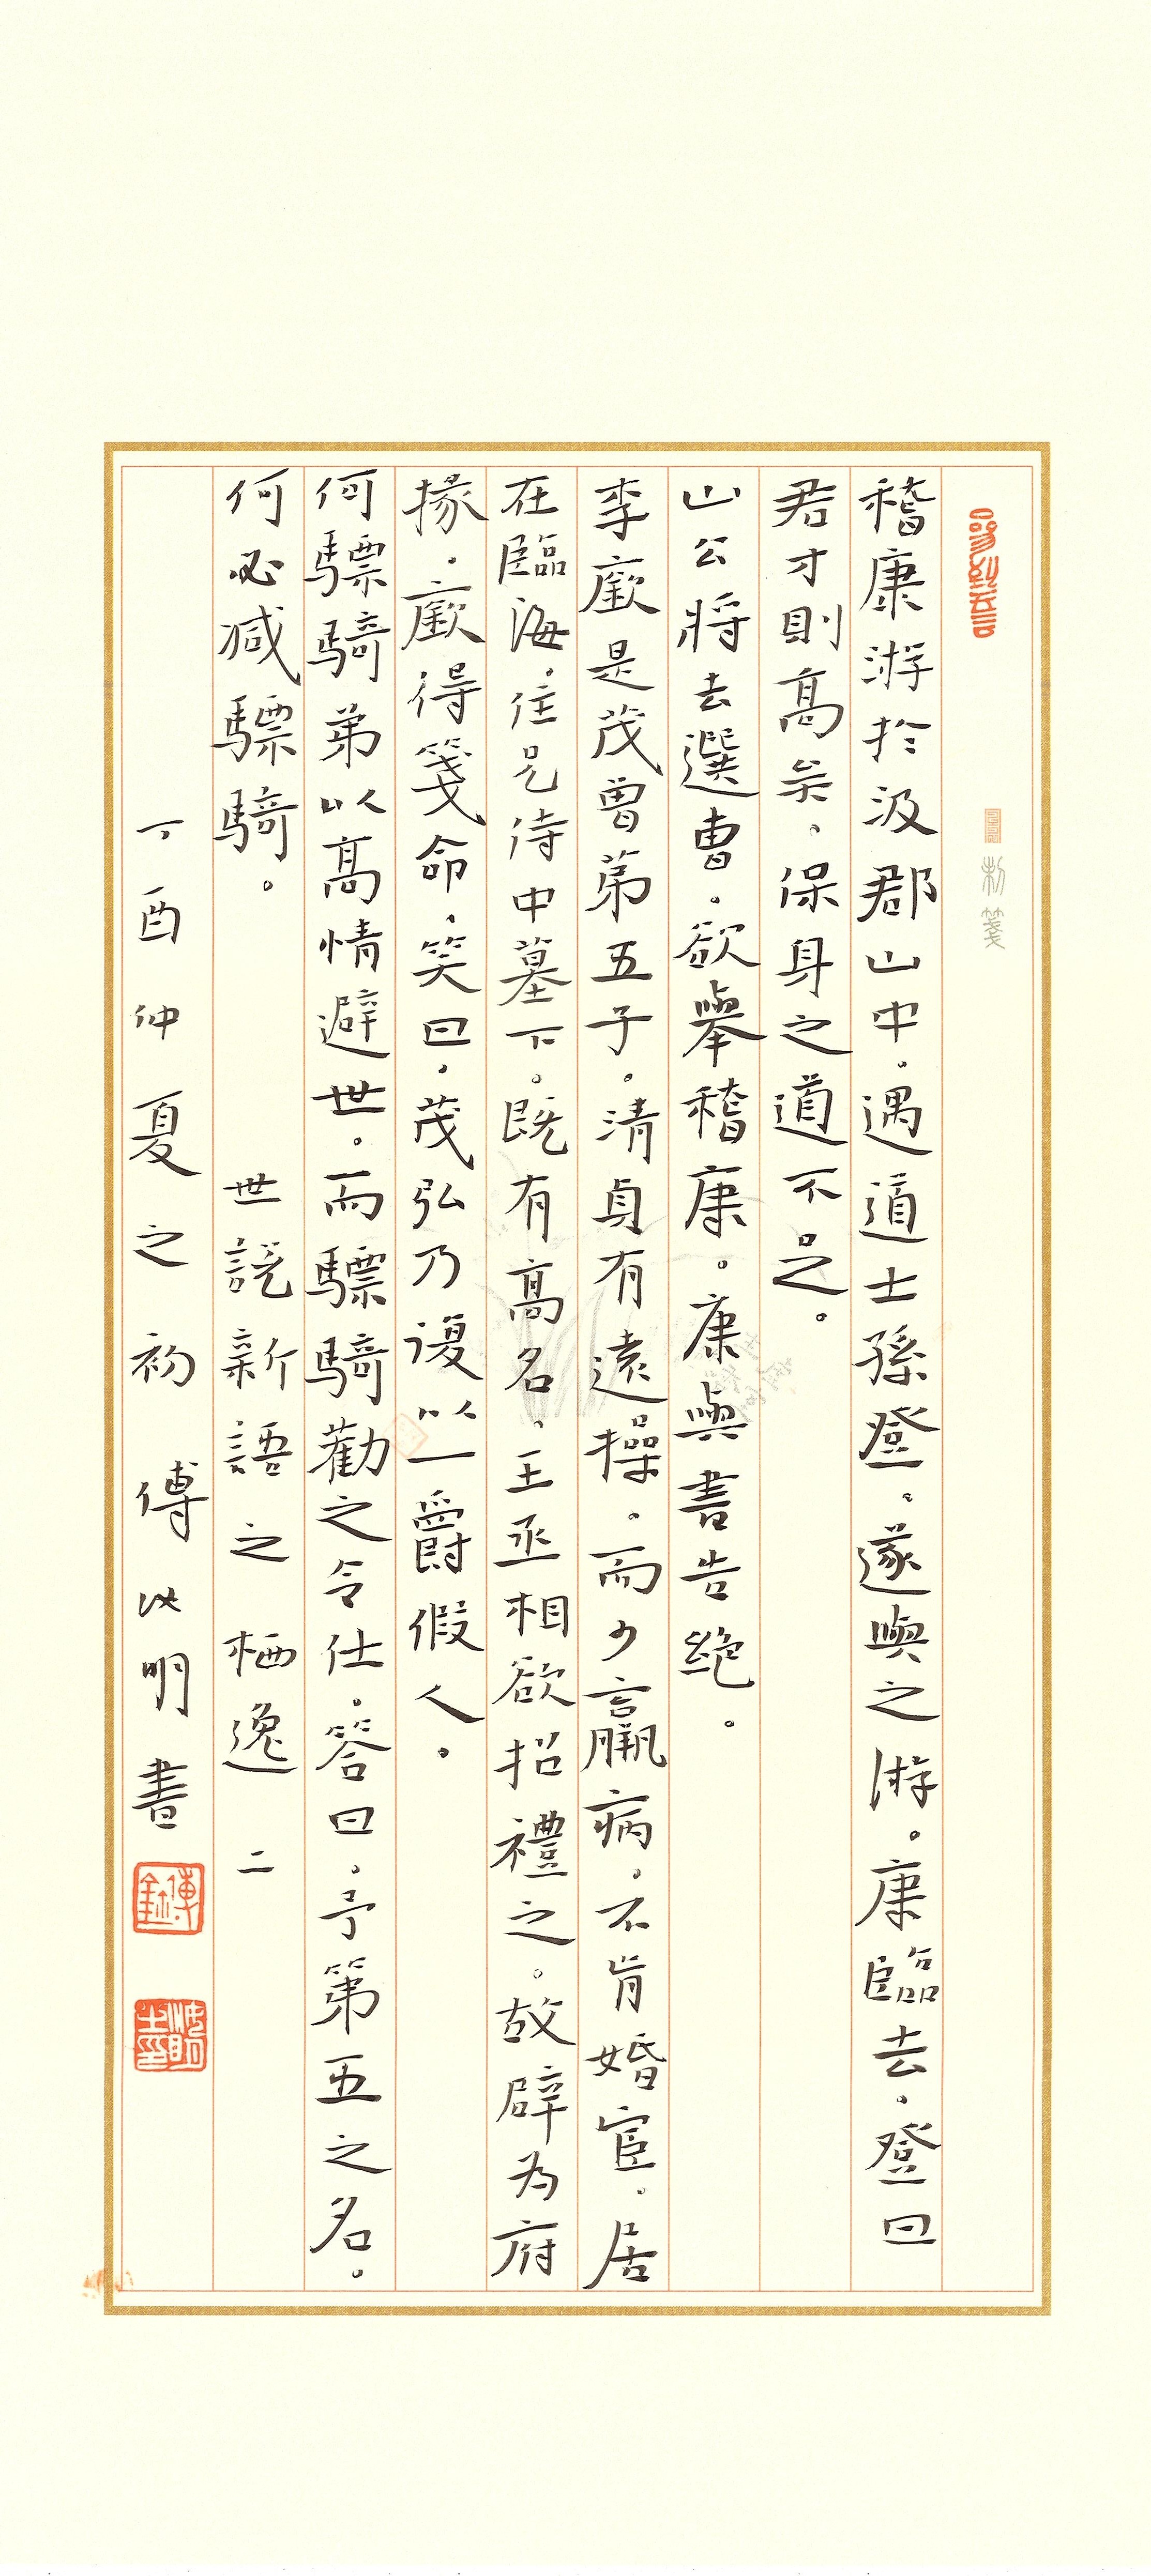 稽康游於汲郡山中。遇道士孫登。遂與之游。康臨去。登曰
君才則高矣。保身之道不足。
山公將去選曹。欲舉稽康。康與書告絕。
李廞是茂曾弟五子。清貞有遠操。而少羸病。不肯婚宦。居
在臨海。住兄侍中墓下。既有高名。王丞相欲招禮之。故辟為府
掾。廞得箋命。笑曰。茂弘乃復以一爵假人。
何驃騎弟以高情避世。而驃騎勸之令仕。答曰。予第五之名。
何必減驃騎。
世說新語之 栖逸 二
丁酉仲夏之初 傅以明書
制箋